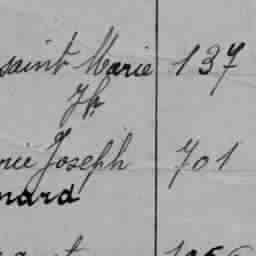 saint Marie 137
Jh
rie Joseph 701
nard